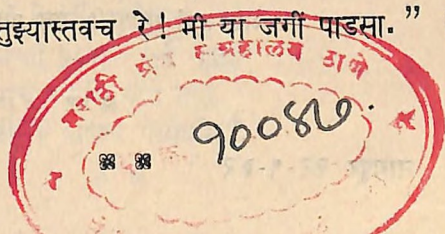 तुझ्यास्तवच रे! मी या जगीं पाडसा.”
मराठी ग्रंथ संग्रहालय ठाणे
१००४७.